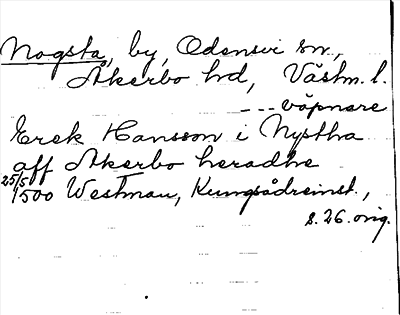 Nogsta, by, Odensvi sn.,
Åkerbo hd, Västm. l.
--- väpnare
Erek Hansson i Nystha
aff Åkerbo heradhe
25/5 1500 Westman, Kungsådreinst.,
s. 26. orig.